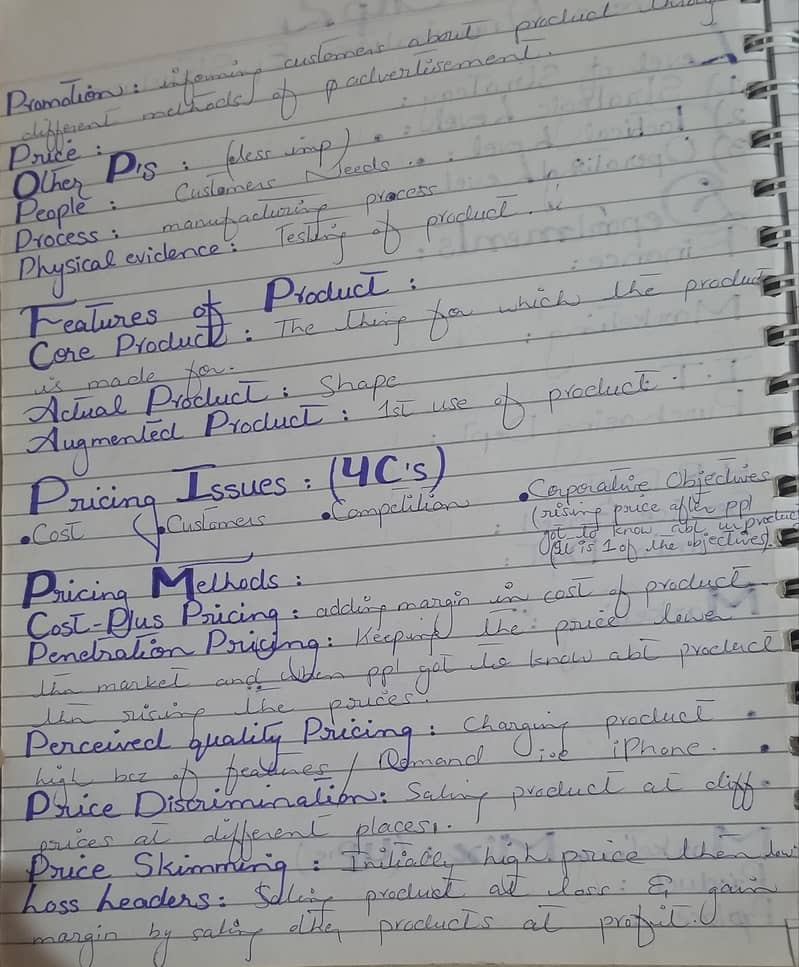 Promotion : informing customers about product
different methods of advertisement.
Price :
Other P's : (less imp) .
People : Customers Needs .
Process : manufacturing process
Physical evidence : Testing of product.
Features of Product :
Core Product : The thing for which the product
is made for.
Actual Product : Shape
Augmented Product : 1st use of product.
Pricing Issues : (4C's)
•Cost •Customers •Competition •Corporative Objectives
(rising price after ppl
got to know abt product
is 1 of the objectives).
Pricing Methods :
Cost-Plus Pricing : adding margin in cost of product
Penetration Pricing : Keeping the price lower
thn market and when ppl got to know abt product
thn rising the prices.
Perceived quality Pricing : Charging product
high bcz of features / Demand i.e iPhone.
Price Discrimination : Saling product at diff
prices at different places.
Price Skimming : Initialy high price then low
Loss Leaders : Saling product at loss & gain
margin by saling other products at profit.